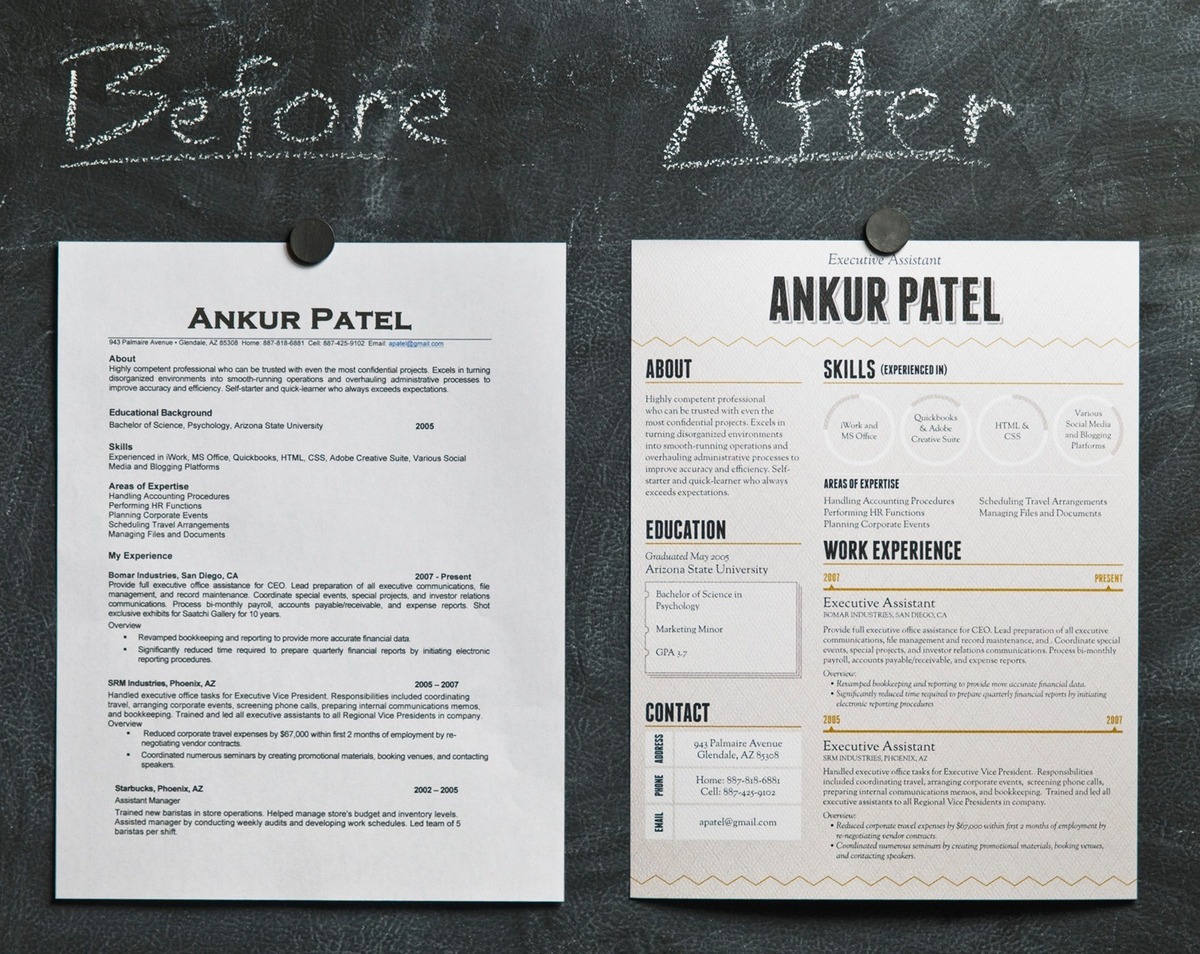 Before
After
ANKUR PATEL
943 Palmaire Avenue • Glendale, AZ 85308 Home: 887-818-6881 Cell: 887-425-9102 Email: apatel@gmail.com
About
Highly competent professional who can be trusted with even the most confidential projects. Excels in turning
disorganized environments into smooth-running operations and overhauling administrative processes to
improve accuracy and efficiency. Self-starter and quick-learner who always exceeds expectations.
Educational Background
Bachelor of Science, Psychology, Arizona State University 2005
Skills
Experienced in iWork, MS Office, Quickbooks, HTML, CSS, Adobe Creative Suite, Various Social
Media and Blogging Platforms
Areas of Expertise
Handling Accounting Procedures
Performing HR Functions
Planning Corporate Events
Scheduling Travel Arrangements
Managing Files and Documents
My Experience
Bomar Industries, San Diego, CA 2007 - Present
Provide full executive office assistance for CEO. Lead preparation of all executive communications, file
management, and record maintenance. Coordinate special events, special projects, and investor relations
communications. Process bi-monthly payroll, accounts payable/receivable, and expense reports. Shot
exclusive exhibits for Saatchi Gallery for 10 years.
Overview
▪ Revamped bookkeeping and reporting to provide more accurate financial data.
▪ Significantly reduced time required to prepare quarterly financial reports by initiating electronic
reporting procedures.
SRM Industries, Phoenix, AZ 2005 – 2007
Handled executive office tasks for Executive Vice President. Responsibilities included coordinating
travel, arranging corporate events, screening phone calls, preparing internal communications memos,
and bookkeeping. Trained and led all executive assistants to all Regional Vice Presidents in company.
Overview
▪ Reduced corporate travel expenses by $67,000 within first 2 months of employment by re-
negotiating vendor contracts.
▪ Coordinated numerous seminars by creating promotional materials, booking venues, and contacting
speakers.
Starbucks, Phoenix, AZ 2002 – 2005
Assistant Manager
Trained new baristas in store operations. Helped manage store's budget and inventory levels.
Assisted manager by conducting weekly audits and developing work schedules. Led team of 5
baristas per shift.
Executive Assistant
ANKUR PATEL
ABOUT
Highly competent professional
who can be trusted with even the
most confidential projects. Excels in
turning disorganized environments
into smooth-running operations and
overhauling administrative processes to
improve accuracy and efficiency. Self-
starter and quick-learner who always
exceeds expectations.
EDUCATION
Graduated May 2005
Arizona State University
Bachelor of Science in
Psychology
Marketing Minor
GPA 3.7
CONTACT
ADDRESS
943 Palmaire Avenue
Glendale, AZ 85308
PHONE
Home: 887-818-6881
Cell: 887-425-9102
EMAIL
apatel@gmail.com
SKILLS (EXPERIENCED IN)
iWork and
MS Office
Quickbooks
& Adobe
Creative Suite
HTML &
CSS
Various
Social Media
and Blogging
Platforms
AREAS OF EXPERTISE
Handling Accounting Procedures
Performing HR Functions
Planning Corporate Events
Scheduling Travel Arrangements
Managing Files and Documents
WORK EXPERIENCE
2007 PRESENT
Executive Assistant
BOMAR INDUSTRIES, SAN DIEGO, CA
Provide full executive office assistance for CEO. Lead preparation of all executive
communications, file management and record maintenance, and . Coordinate special
events, special projects, and investor relations communications. Process bi-monthly
payroll, accounts payable/receivable, and expense reports.
Overview:
• Revamped bookkeeping and reporting to provide more accurate financial data.
• Significantly reduced time required to prepare quarterly financial reports by initiating
electronic reporting procedures
2005 2007
Executive Assistant
SRM INDUSTRIES, PHOENIX, AZ
Handled executive office tasks for Executive Vice President. Responsibilities
included coordinating travel, arranging corporate events, screening phone calls,
preparing internal communications memos, and bookkeeping. Trained and led all
executive assistants to all Regional Vice Presidents in company.
Overview:
• Reduced corporate travel expenses by $67,000 within first 2 months of employment by
re-negotiating vendor contracts.
• Coordinated numerous seminars by creating promotional materials, booking venues,
and contacting speakers.